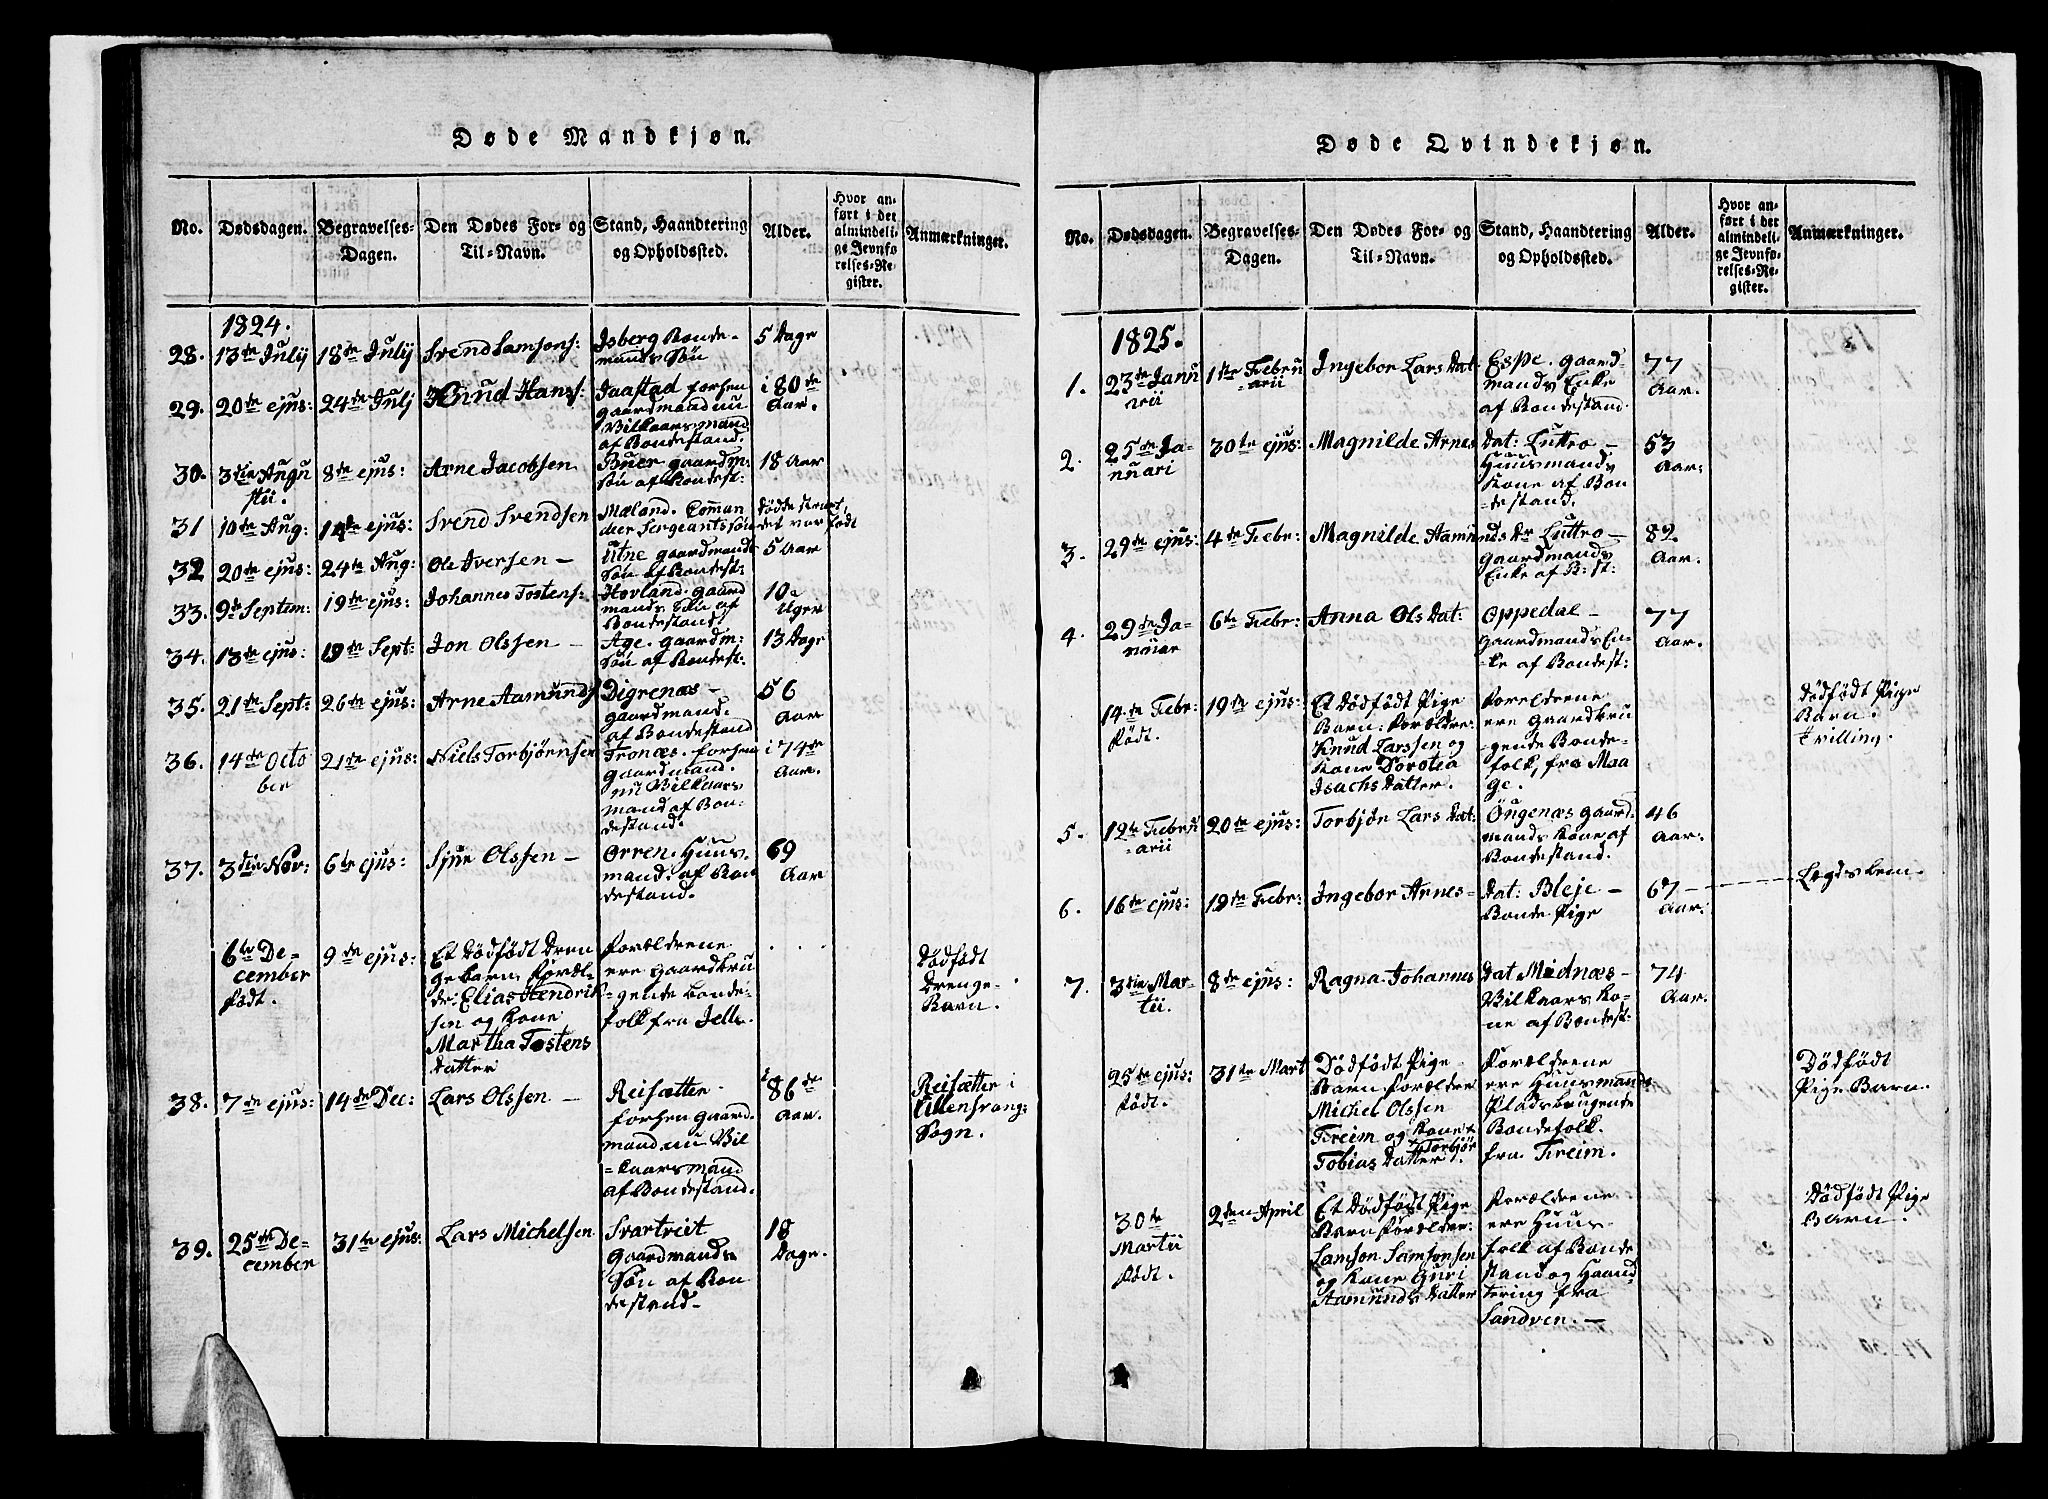 Døde Mandkjøn.
No. Dødsdagen. Begravelses-Dagen. Den Dødes For- og Til-Navn. Stand, Haandtering og Opholdssted. Alder. Hvor anført i det almindelige Jevnførelses-Register. Anmærkninger.
1824.
28. 13de July 18de July Svend Samsons: Isberg Bondemands Søn 5 Dage
29. 20de ejus: 24de Julj Knud Hans: Jaastad forhen gaardmand nu Vilkaarsmand af Bondestand. i 80de Aar.
30. 3die Augustii. 8de ejus: Arne Jacobsen Buer gaardm: Søn af Bondest: 18 Aar
31 10de Aug: 14de ejus: Svend Svendsen Mæland. Comandeer Sergeants søn døde strax det var født
32 20de ejus: 24de Aug: Ole Iversen — Utne gaardmands Søn af Bondest: 5 Aar
33. 9de Septem: 19de ejus: Johannes Tostens: Hovland. gaardmands Søn af Bondestand 10 Uger
34. 13de ejus: 19de Sept: Jon Olssen — Age. gaardm: Søn af Bondest: 13 Dage
35. 21de Sept: 26de ejus: Arne Aamunds Digrenæs — gaardmand. af Bondestand 56 Aar
36. 14de October 21de ejus: Niels Torbjørnsen Tronæs. forhen gaardmand. nu Vilkaarsmand af Bondestand. i 74de Aar.
37. 3die Nov: 6te ejus: Sjur Olssen — Orren. Huusmand. af Bondestand. 69 Aar
6te December født. 9de ejus: Et Dødfødt Drengebarn. Forældr: Elias Hendriksen og Kone Martha Tostens datter Forældrene ere Gaardbrugende bondefolk fra Jelle. . . . Dødfødt Drenge-Barn.
38. 7de ejus: 14de Dec: Lars Olssen — Reisætter. forhen gaardmand. nu Vilkaarsmand af Bondestand. i 86de Aar. Reisætter i Ullensvang: Sogn.
39. 25de December 31te ejus: Lars Michelsen Svartveit Gaardmands Søn af Bondestand. 18 Dage.
Døde Qvindekjøn.
No. Dødsdagen. Begravelses-Dagen. Den Dødes For- og Til-Navn. Stand, Haandtering og Opholdssted. Alder. Hvor anført i det almindelige Jevnførelses-Register. Anmærkninger.
1825.
1. 23de Januarii 1ste Februarii Ingebor Lars Dat: Espe. gaardmands Enke af Bondestand. 77 Aar.
2. 25de Januari 30te ejus: Magnilde Arnes Dat: Luttro — Huusmands Kone af Bondestand. 53 Aar:
3. 29de ejus: 4de Febr: Magnilde Aamunds Dr Luttro — Gaardmands Enke af B: st: 82 Aar.
4. 29de Januar 6te Febr: Anna Ols Dat: Oppedal — Gaardmands Enke af Bondest: 77 Aar.
14.de Febr: født. 19de ejus: Et Dødfødt Pige Barn: Forældre: Knud Larssen og Kone Dorotea Isachs Datter. Forældrene ere Gaardbrugende Bondefolk, fra Maage. Dødfødt Pige Barn. Tvilling.
5. 12te Februarii 20de ejus: Torbjør Lars Dat: Øugenæs gaardmands Kone af Bondestand. 46 Aar.
6. 16de ejus: 19de Febr: Ingebor Arnes- Dat: Bleje — Bonde Pige 67 Aar: Legdslem.
7. 3die Martii. 8de ejus: Ragna Johannes Dat Midnæs — Vilkaars Kone af Bondest: 74 Aar.
25de ejus: født. 31te Mart Dødfødt Pige Barn Forældre Michel Olssen Freim og Kone Torbjør Tobias Datter. Forældrene ere Huusmands Pladsbrugende Bondefolk. fra Freim. Dødfødt Pige Barn.
30te Martii født. 2den April Et Dødfødt Pige Barn Forældre: Samson Samsonsen og Kone Guri Aamunds Datter Forældrene ere Huusfolk af Bondestand og Haandtering fra Sandven. — Dødfødt Pige Barn.